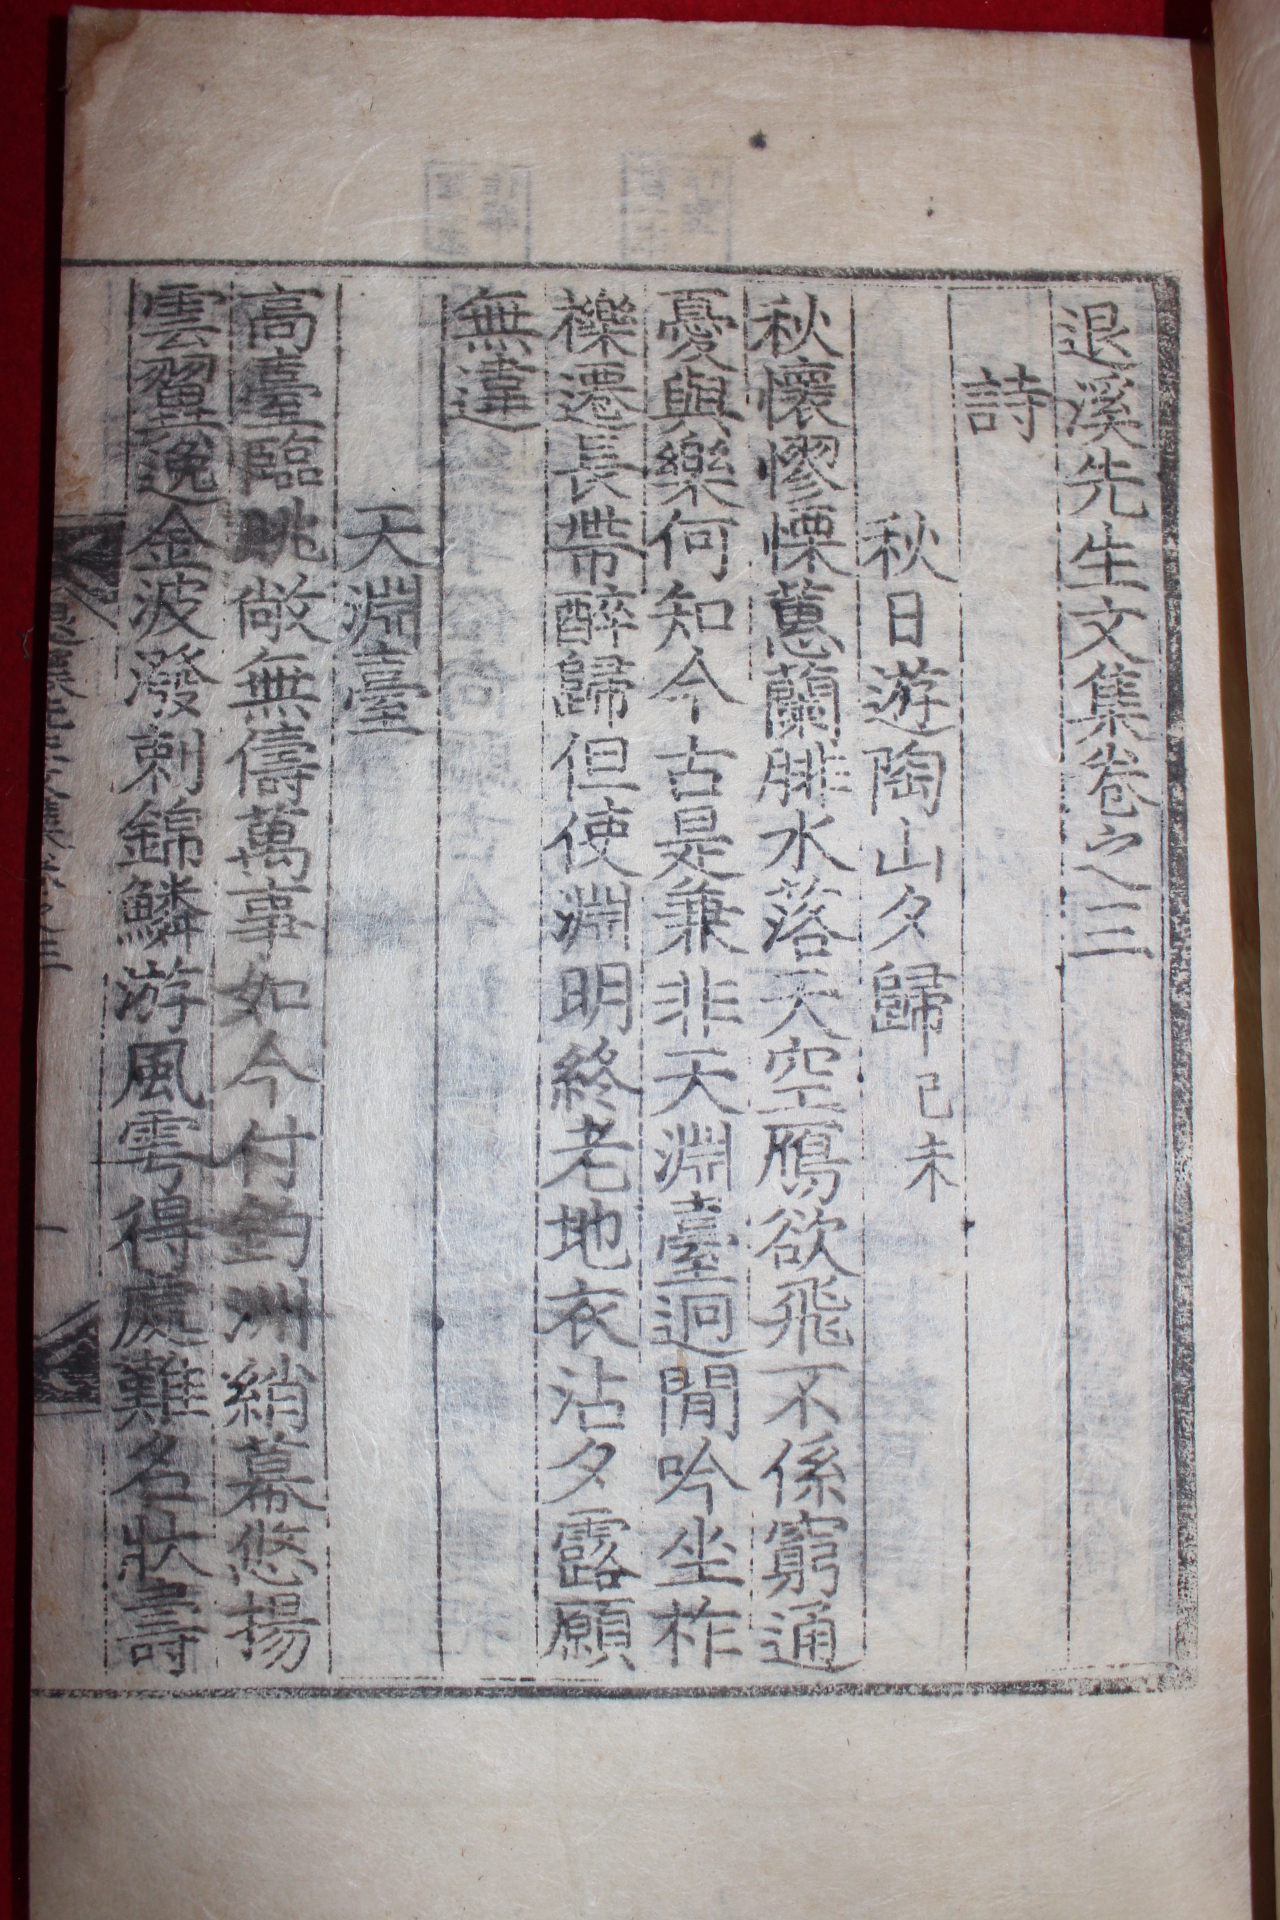 退溪先生文集卷之三
詩
秋日遊陶山夕歸己未
秋懷憀慄蕙蘭腓水落天空鴈欲飛不係窮通
憂與樂何知今古是兼非天淵臺逈閒吟坐柞
櫟遷長帶醉歸但使淵明終老地衣沾夕露願
無違
天淵臺
高臺臨眺敞無儔萬事如今付釣洲綃幕悠揚
雲翼逸金波潑剌錦鱗游風雩得處難名狀壽
退溪先生文集卷之三
一